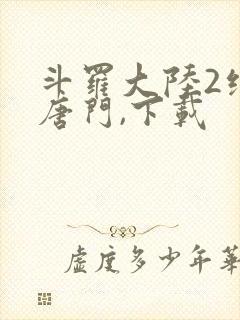 斗羅大陸2
唐門,下載
虛度多少年華